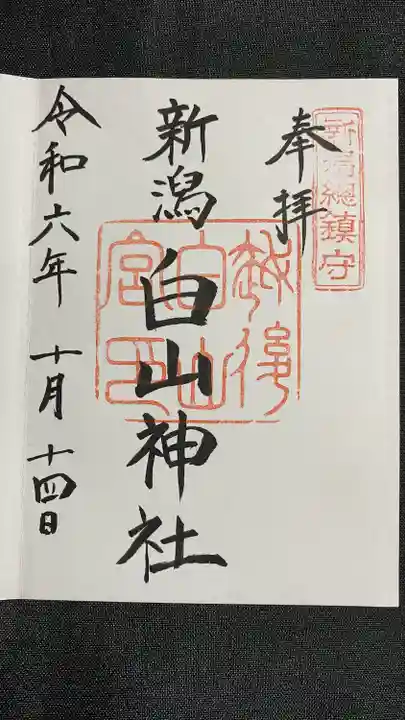 新潟総鎮守
奉拝
新潟白山神社
越後
白山
宮印
令和六年 十月 十四日